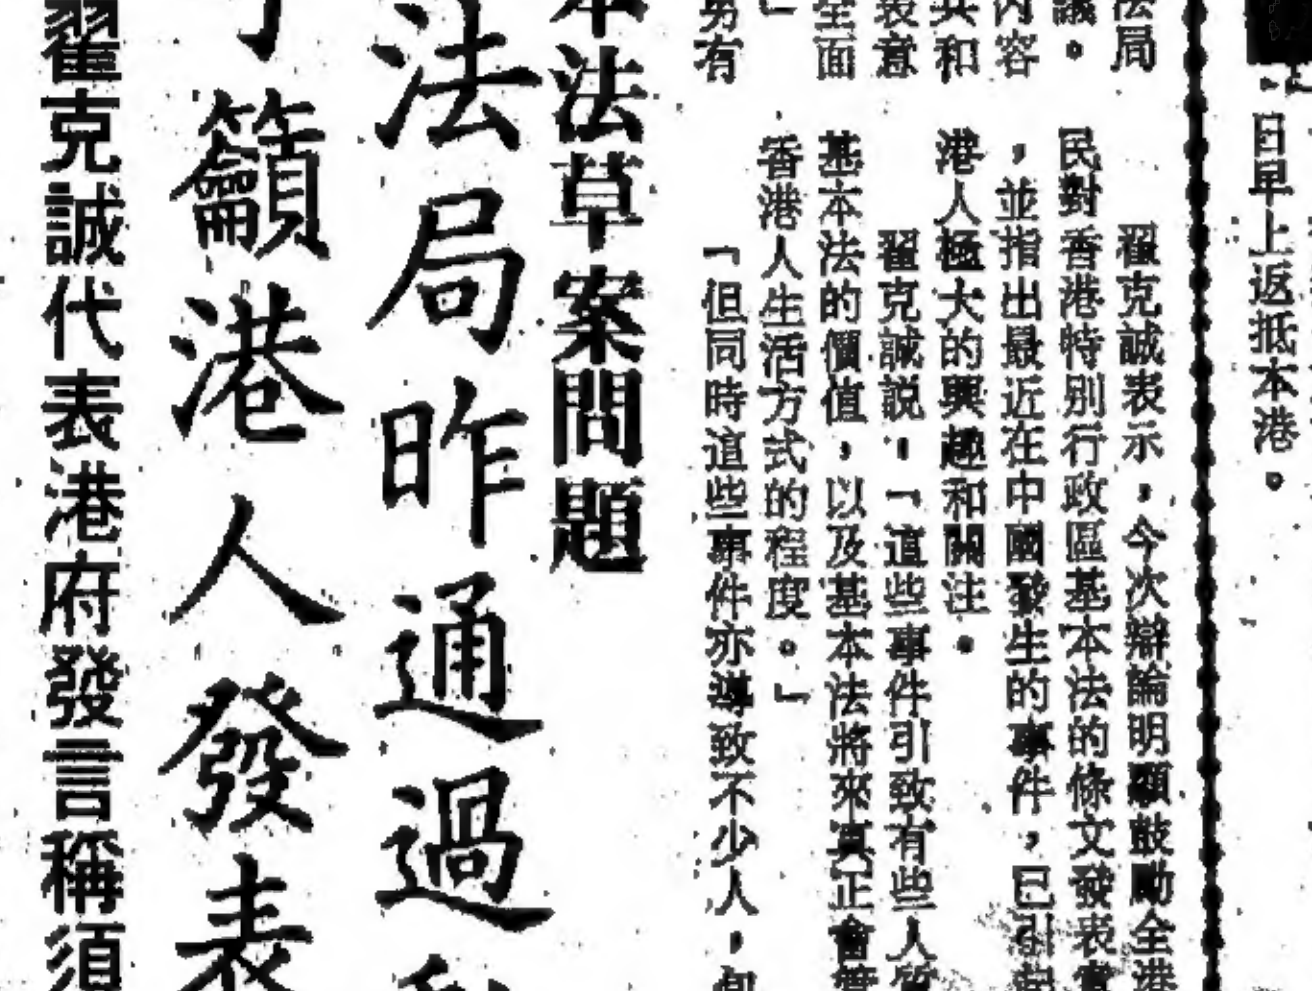 日早上返抵本港。
法局
議。
內容
共和
表意
全面
」
另有
翟克誠表示，今次辯論明顯鼓勵全港
民對香港特別行政區基本法的條文發表意
，並指出最近在中國發生的事件，已引起
港人極大的興趣和關注。
翟克誠說：「這些事件引致有些人質
基本法的價值，以及基本法將來真正會管
香港人生活方式的程度。」
「但同時這些事件亦導致不少人，包
本法草案問題
法局昨通過動
籲港人發表
翟克誠代表港府發言稱須